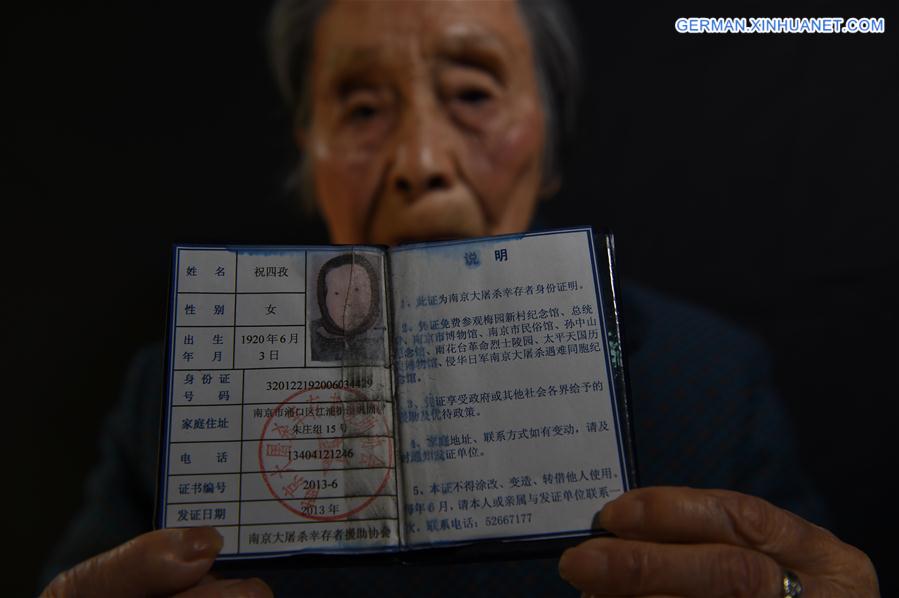 GERMAN.XINHUANET.COM
姓 名 祝四孜
性 别 女
出 生 1920年6月
年 月 3日
身份证 320122192006034429
号 码
家庭住址 南京市浦口区江浦街道
朱庄组15号
电 话 13404121246
证书编号 2013-6
发证日期 2013年
南京大屠杀幸存者援助协会
说 明
1、此证为南京大屠杀幸存者身份证明。
2、凭证免费参观梅园新村纪念馆、总统
、南京市博物馆、南京市民俗馆、孙中山
纪念馆、雨花台革命烈士陵园、太平天国历
史博物馆、侵华日军南京大屠杀遇难同胞纪
念馆。
3、凭证享受政府或其他社会各界给予的
援助及优待政策。
4、家庭地址、联系方式如有变动，请及
时通知发证单位。
5、本证不得涂改、变造、转借他人使用。
每年6月，请本人或亲属与发证单位联系一
次，联系电话：52667177